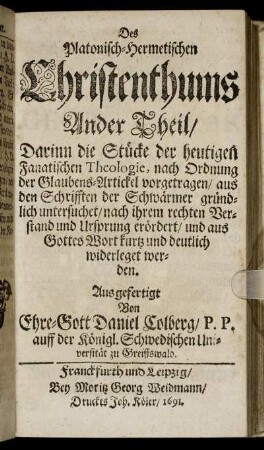 Des
Platonisch-Hermetischen
Christenthums
Ander Theil/
Darinn die Stücke der heutigen
Fanatischen Theologie, nach Ordnung
der Glaubens-Artickel vorgetragen/ aus
den Schrifften der Schwärmer gründ-
lich untersuchet/ nach ihrem rechten Ver-
stand und Ursprung erördert/ und aus
Gottes Wort kurtz und deutlich
widerleget wer-
den.
Ausgefertigt
Von
Ehre-Gott Daniel Colberg/ P. P.
auff der Königl. Schwedischen Uni-
versität zu Greiffswald.
Franckfurth und Leipzig/
Bey Moritz Georg Weidmann/
Druckts Joh. Köler/ 1691.